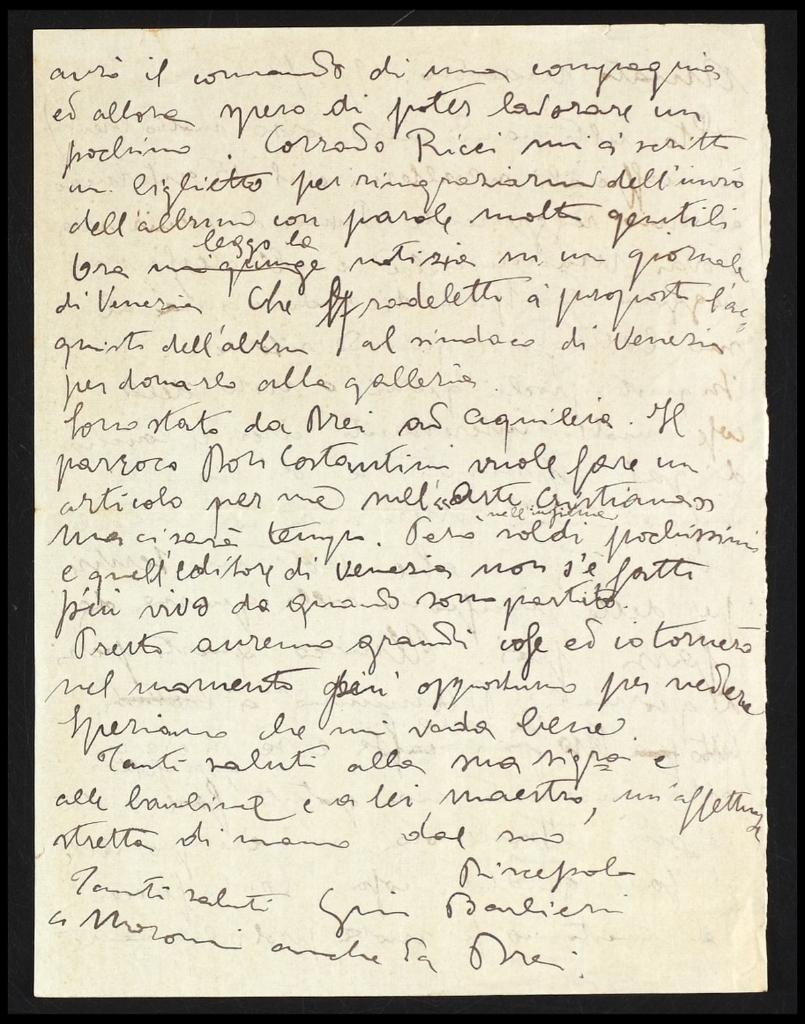 avrò il comando di una compagnia
ed allora spero di poter lavorare un
pochino. Corrado Ricci mi à scritto
un biglietto per ringraziarmi dell'invio
dell'album con parole molto gentili
leggo la
Ora mi giunge notizia in un giornale
di Venezia che Fradeletto à proposto l'ac=
quisto dell'album al sindaco di Venezia
per donarlo alla galleria.
Sono stato da Brei ad Aquileia. Il
parroco Don Costantini vuole fare un
articolo per me nell'"Arte Cristiana"
nell'insieme
ma ci sarà tempo. Però soldi pochissimi
e quell'editore di Venezia non s'è fatto
più vivo da quando sono partito.
Presto avremo grandi cose ed io tornerò
nel momento più opportuno per vedere
Speriamo che mi vada bene.
Tanti saluti alla sua sigra e
alle bambine e a lei maestro, un'affettuosa
stretta di mano dal suo
Discepolo
Tanti saluti Gino Barbieri
a Moroni anche da Brei.